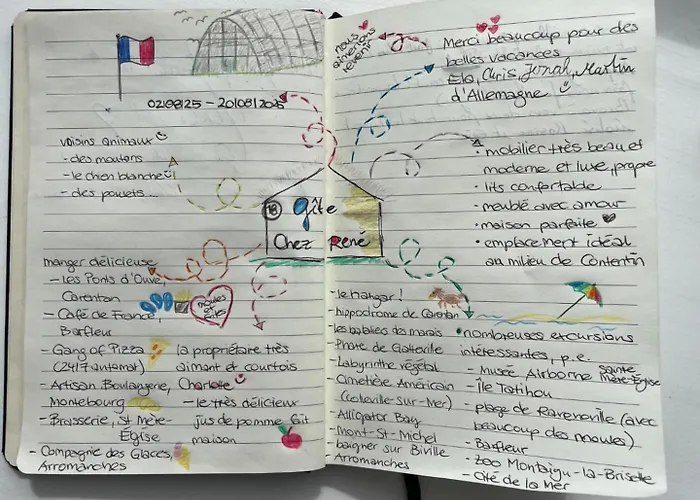 02/08/25 - 20/08/2025
voisins animaux
- des moutons
- le chien blanche
- des poulets
manger délicieuse
- les Ponts d'Ouve,
Carentan
- Café de France,
Barfleur
moules et frites
- Gang of Pizza
(24/7 automat)
- Artisan Boulangerie,
Montebourg
- Brasserie, St Mère-
Église
- Compagnie des Glaces,
Arromanches
la propriétaire très
aimant et courtois
Charlotte
- le très délicieux
jus de pomme fait
maison
18 Gîte
Chez René
nous
aimerions
revenir
Merci beaucoup pour des
belles vacances
Ela, Chris, Jonah, Martin
d'Allemagne
• mobilier très beau et
moderne et luxe, propre
• lits confortable
• meublé avec amour
• maison parfaite
• emplacement idéal
au milieu de Contentin
- le hangar!
- hippodrome de Carentan
- les babliés des marais
- Phare de Gatteville
- Labyrinthe végétal
- Cimetière Américain
(Colleville-sur-Mer)
- Alligator Bay
- Mont-St-Michel
- baigner sur Biville
Arromanches
• nombreuses excursions
intéressantes, p.e.
- Musée Airborne Sainte
Mère-Église
- Île Tatihou
- plage de Ravenoville (avec
beaucoup des moules)
- Barfleur
- Zoo Montaigu-la-Brisette
- Cité de la Mer